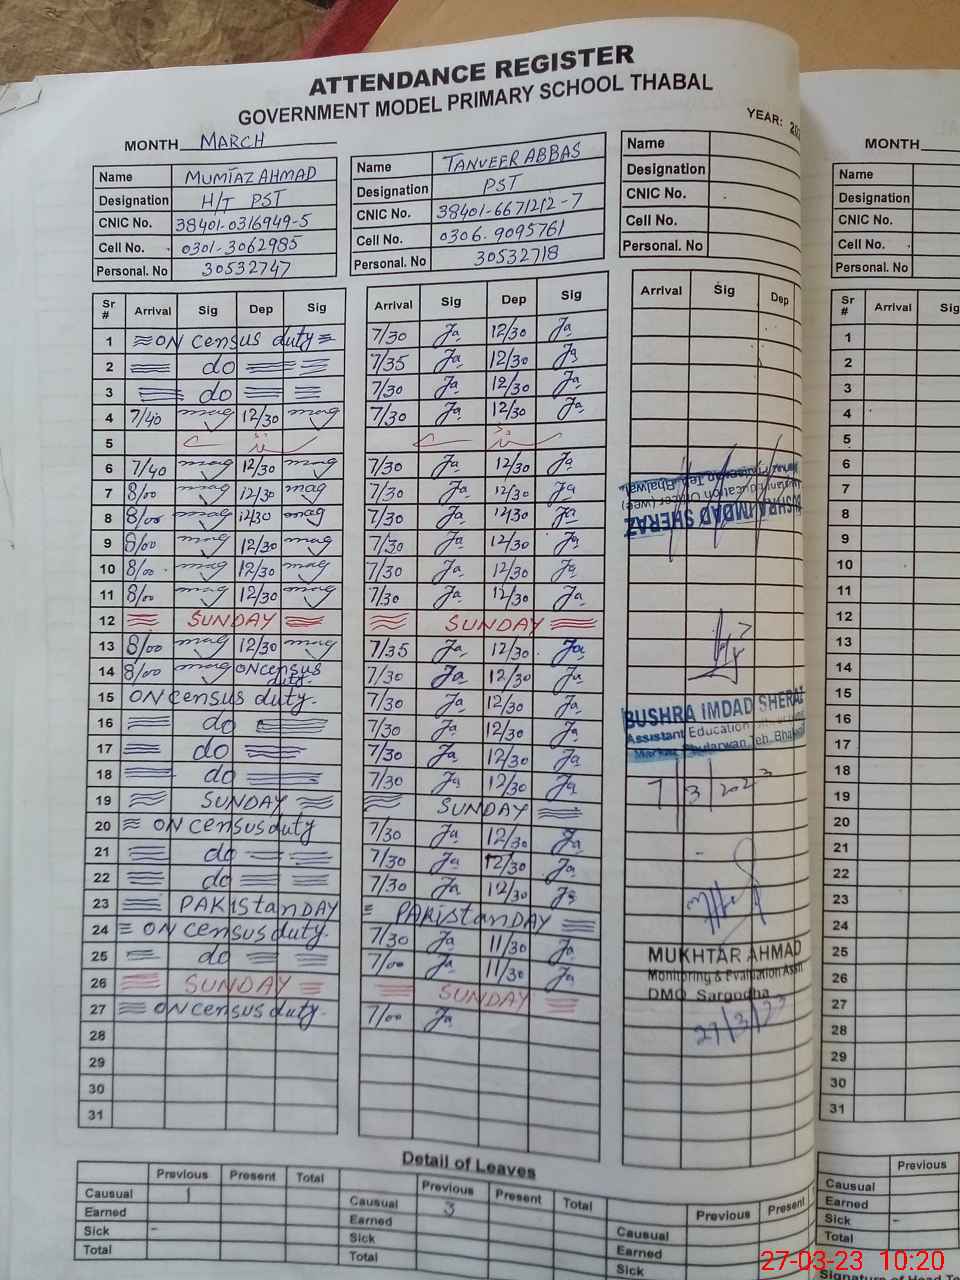 ATTENDANCE REGISTER
GOVERNMENT MODEL PRIMARY SCHOOL THABAL
YEAR: 202
MONTH MARCH
MONTH
Name MUMTAZ AHMAD
Designation H/T PST
CNIC No. 38401-0316949-5
Cell No. 0301-3062985
Personal. No 30532747
Name TANVEER ABBAS
Designation PST
CNIC No. 38401-6671212-7
Cell No. 0306-9095761
Personal. No 30532718
Name
Designation
CNIC No.
Cell No.
Personal. No
Name
Designation
CNIC No.
Cell No.
Personal. No
Sr # Arrival Sig Dep Sig Arrival Sig Dep Sig Arrival Sig Dep Sr # Arrival Sig
1 ON census duty 7/30 Ja 12/30 Ja 1
2 do 7/35 Ja 12/30 Ja 2
3 do 7/30 Ja 12/30 Ja 3
4 7/40 mag 12/30 mag 7/30 Ja 12/30 Ja 4
5 5
6 7/40 mag 12/30 mag 7/30 Ja 12/30 Ja 6
7 8/00 mag 12/30 mag 7/30 Ja 12/30 Ja 7
8 8/00 mag 12/30 mag 7/30 Ja 12/30 Ja 8
9 8/00 mag 12/30 mag 7/30 Ja 12/30 Ja 9
10 8/00 mag 12/30 mag 7/30 Ja 12/30 Ja 10
11 8/00 mag 12/30 mag 7/30 Ja 12/30 Ja 11
12 SUNDAY SUNDAY 12
13 8/00 mag 12/30 mag 7/35 Ja 12/30 Ja 13
14 8/00 mag ON census duty. 7/30 Ja 12/30 Ja 14
15 ON census duty. 7/30 Ja 12/30 Ja 15
16 do 7/30 Ja 12/30 Ja 16
17 do 7/30 Ja 12/30 Ja 17
18 do 7/30 Ja 12/30 Ja 18
19 SUNDAY SUNDAY 19
20 ON census duty 7/30 Ja 12/30 Ja 20
21 do 7/30 Ja 12/30 Ja 21
22 do 7/30 Ja 12/30 Ja 22
23 PAKIstanDAY PAKIstanDAY 23
24 ON census duty. 7/30 Ja 11/30 Ja 24
25 do 7/00 Ja 11/30 Ja 25
26 SUNDAY SUNDAY 26
27 ON census duty. 7/00 Ja 27
28 28
29 29
30 30
31 31
BUSHRA IMDAD SHERAZ
Assistant Education Officer (wee)
Markaz Phularwan Teh. Bhalwal
BUSHRA IMDAD SHERAZ
Assistant Education
Markaz Phularwan Teh. Bhalwal
7/3/2023
MUKHTAR AHMAD
Monitoring & Evaluation Asstt
DMO Sargodha
27/3/23
Detail of Leaves
Previous Present Total
Causual 1
Earned
Sick -
Total
Previous Present Total
Causual 3
Earned
Sick
Total
Previous Present
Causual
Earned
Sick
Previous
Causual
Earned
Sick -
Total
Signature of Head T
27-03-23 10:20